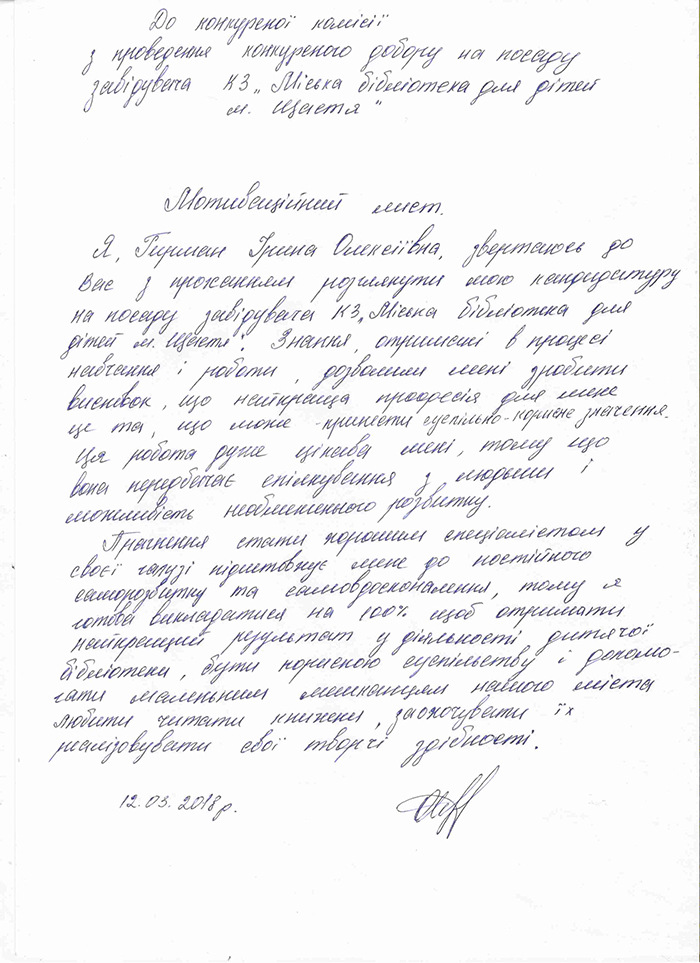 До конкурсної комісії
з проведення конкурсного добору на посаду
завідувача КЗ „Міська бібліотека для дітей
м. Щастя"
Мотиваційний лист.
Я, Гирман Ірина Олексіївна, звертаюсь до
Вас з проханням розглянути мою кандидатуру
на посаду завідувача КЗ „Міська бібліотека для
дітей м. Щастя". Знання, отримані в процесі
навчання і роботи, дозволили мені зробити
висновок, що найкраща професія для мене
це та, що може принести суспільно-корисне значення.
Ця робота дуже цікава мені, тому що
вона передбачає спілкування з людьми і
можливість необмеженого розвитку.
Прагнення стати хорошим спеціалістом у
своєї галузі підштовхує мене до постійного
саморозвитку та самовдосконалення, тому я
готова викладатися на 100% щоб отримати
найкращий результат у діяльності дитячої
бібліотеки, бути корисною суспільству і допома-
гати маленьким мешканцям нашого міста
любити читати книжки, заохочувати їх
реалізовувати свої творчі здібності.
12.03.2018 р.